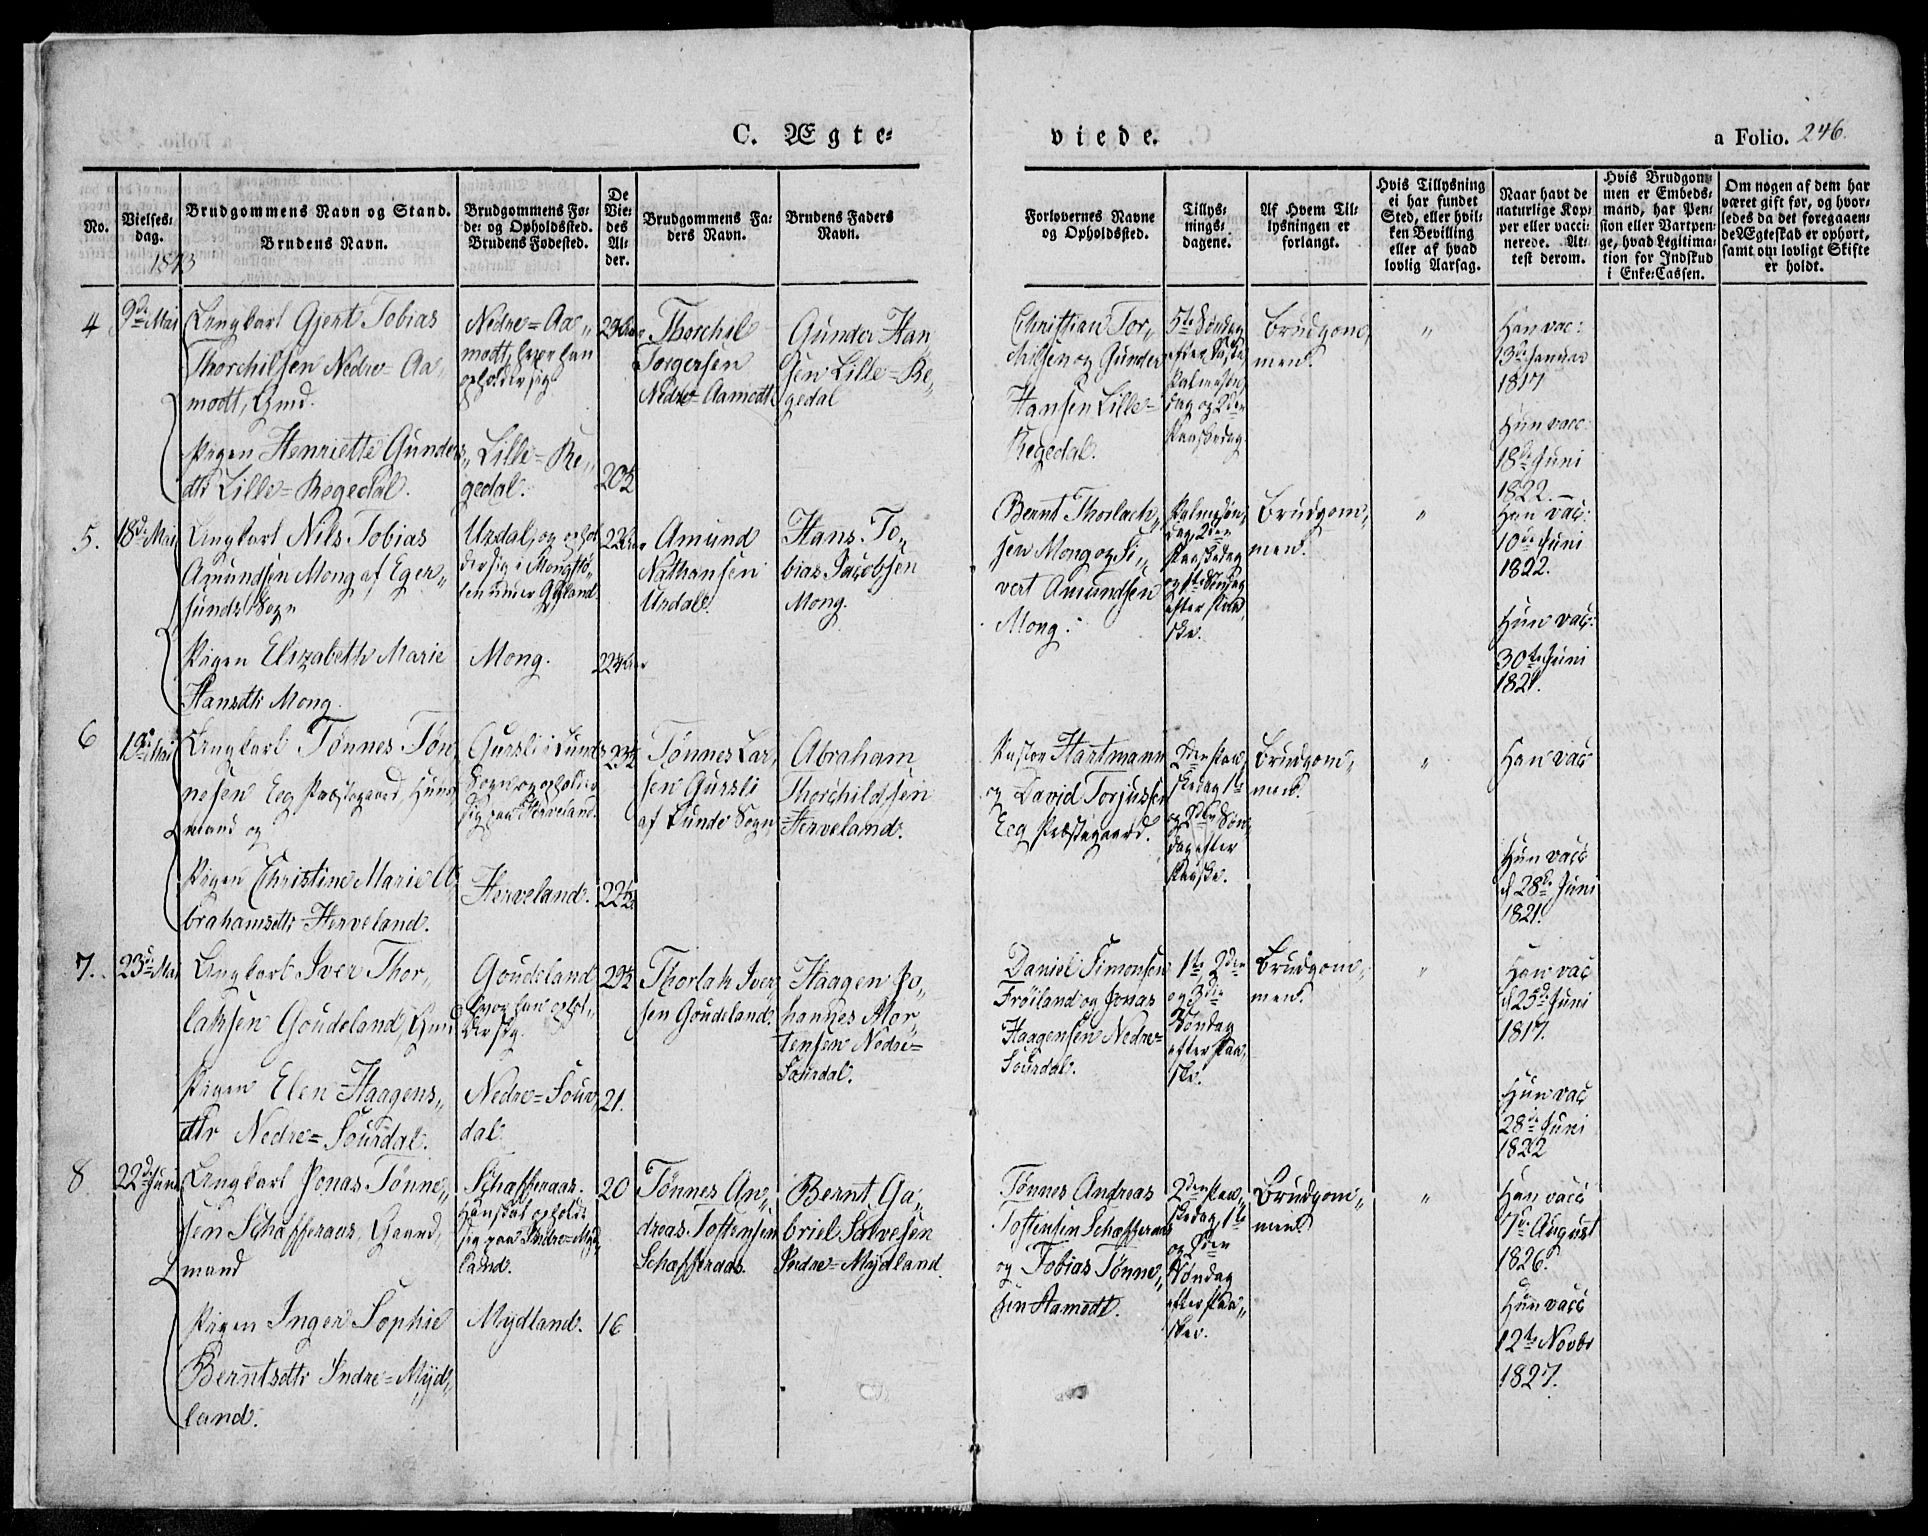 C. Ægte=
viede.
a Folio. 246.
No.
Vielses-
dag.
1843
Brudgommens Navn og Stand.
Brudens Navn.
Brudgommens Fø-
de- og Opholdssted.
Brudens Fødested.
De
Vie-
des
Al-
der.
Brudgommens Fa-
ders Navn.
Brudens Faders
Navn.
Forlovernes Navne
og Opholdssted.
Tillys-
nings-
dagene.
Af Hvem Til-
lysningen er
forlangt.
Hvis Tillysning
ei har fundet
Sted, eller hvil-
ken Bevilling
eller af hvad
lovlig Aarsag.
Naar havt de
naturlige Kop-
per eller vacci-
nerede. At-
test derom.
Hvis Brudgom-
men er Embeds-
mand, har Pen-
sion eller Vartpen-
ge, hvad Legitima-
tion for Indskud
i Enke-Cassen.
Om nogen af dem har
været gift før, og hvor-
ledes da det foregaaen-
de Ægteskab er ophørt,
samt om lovligt Skifte
er holdt.
4
9de Mai
Ungkarl Gjert Tobias
Thorchilsen Nedre Aa-
modt, Gmd.
Pigen Henriette Gunders-
dtr Lille=Regedal.
Nedre=Aa-
modt, hvor han
opholder sig.
Lille=Re-
gedal.
20½
Thorchil
Torgersen
Nedre=Aamodt
Gunder Han-
sen Lille=Re-
gedal
Christian Tor-
chilsen og Gunder
Hansen Lille=
Regedal.
5te Søndag
efter Faste
Palmesøn-
dag og 2den
Paaskedag
Brudgom-
men.
"
Han vac:
3de Januar
1817
Hun vacc:
18de Juni
1822.
5.
18de Mai
Ungkarl Nils Tobias
Amundsen Mong af Eger-
sunds Sogn
Pigen Elizabeth Marie
Hansdtr Mong.
Urdal, og ophol-
der sig i Mong
Mong.
Amund
Nathansen
Urdal.
Hans To-
bias Jacobsen
Mong.
Bernt Thorlach-
sen Mong og Si-
vert Amundsen
Mong.
Palmesøn-
dag, 2den
Paaskedag
og 1ste Søndag
efter Paa-
ske.
Brudgom-
men.
"
Han vac:
10de Juni
1822.
Hun vac:
30te Juni
1821.
6
19de Mai
Ungkarl Tønnes Tøn-
nesen Eeg Præstegaard, Huus-
mand og
Pigen Christine Marie A-
brahamsdtr Herveland.
Gursli i Lunds
Sogn og opholder
sig paa Herveland.
Herveland.
22½
Tønnes Lar-
sen Gursli
af Lunde Sogn
Abraham
Thorchildsen
Herveland.
Pastor Hartmann
og David Torjussen
Eeg Præstegaard.
2den Paa-
skedag 1ste
og 2den Søn-
dag efter
Paaske.
Brudgom-
men.
"
Han vacc
Hun vacc
d 28de Juni
1821.
7.
23de Mai
Ungkarl Iver Thor-
laksen Goudeland, Gmd
Pigen Elen Haagens-
dtr Nedre=Sourdal.
Goudeland
hvor han ophol-
der sig.
Nedre=Sour-
dal.
29½
21.
Thorlak Iver-
sen Goudeland.
Haagen Jo-
hannes Mor-
tensen Nedre=
Sourdal.
Daniel Simonsen
Frøiland og Jonas
Haagensen Nedre=
Sourdal.
1ste, 2den
og 3die
Søndag
efter Paa-
ske.
Brudgom-
men.
"
Han vac
d 25de Juni
1817.
Hun vac
28de Juni
1822
8
22de Juni
Ungkarl Jonas Tønne-
sen Schafferaas, Gaard-
mand
Pigen Inger Sophie
Berntsdtr Indre=Myd-
land.
Schafferaas.
Han skal opholde
sig paa Indre=Myd-
land.
Mydland.
20
16
Tønnes An-
dreas Tostensen
Schafferaas.
Bernt Ga-
briel Salvesen
Indre=Mydland.
Tønnes Andreas
Tostensen Schafferaas
og Tobias Tønne-
sen Aamodt.
2den Paa-
skedag, 1ste
og 2den
Søndag
efter Paa-
ske.
Brudgom-
men.
"
Han vacc
7de August
1826.
Hun vacc
12te Novbr
1827.